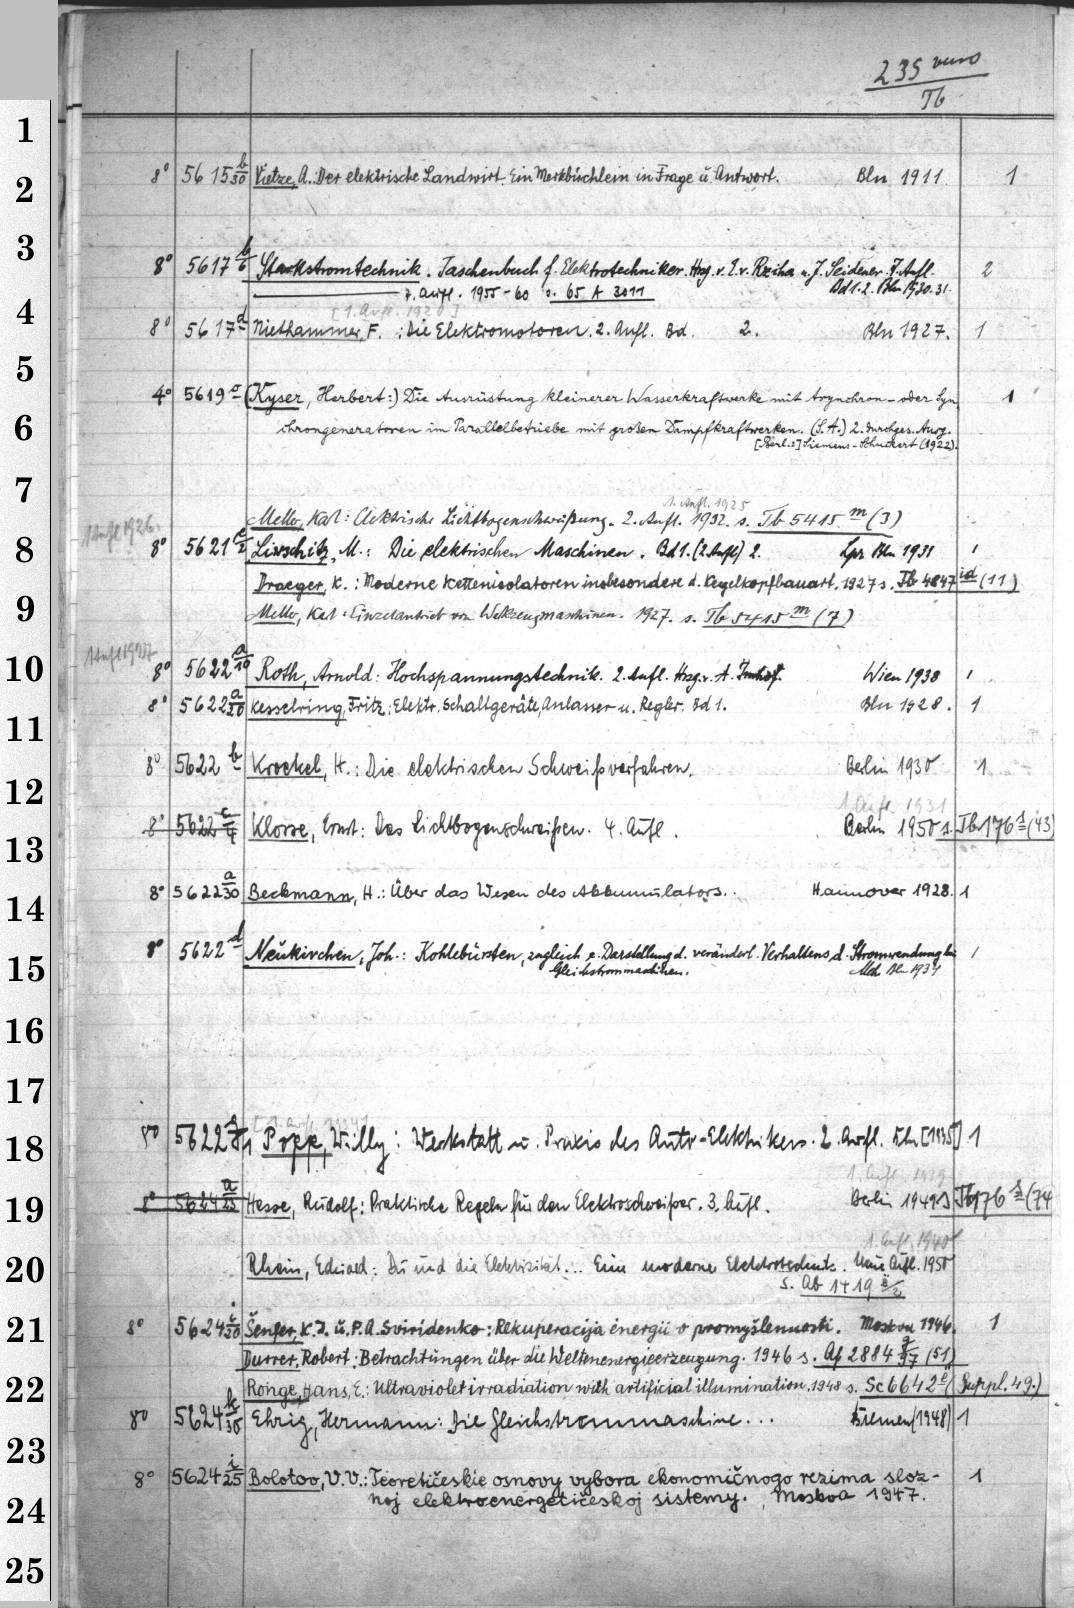 235 verso
Tb
1
8° 5615 b/30 Vietze, A.: Der elektrische Landwirt. Ein Merkbüchlein in Frage u. Antwort. Bln 1911. 1
2
3
8° 5617 b/6 Starkstromtechnik. Taschenbuch f. Elektrotechniker. Hrsg. v. E. v. Rziha u. J. Seidener. 7. Aufl. 2
Bd 1.2. Bln 1930.31.
7. Aufl. 1955-60 s. 65 A 3011
4
[1. Aufl. 1920]
8° 5617 d Niethammer, F.: Die Elektromotoren. 2. Aufl. Bd. 2. Bln 1927. 1
5
4° 5619 a (Kyser, Herbert:) Die Ausrüstung kleinerer Wasserkraftwerke mit Asynchron- oder Syn
6
chrongeneratoren im Parallelbetriebe mit großen Dampfkraftwerken. (S.A.) 2. durchges. Ausg. 1
[Berl.:] Siemens-Schuckert (1922).
7
1. Aufl. 1925
Mello, Kat: Elektrische Lichtbogenschweißung. 2. Aufl. 1932. s. Tb 5415 m (3)
1 Aufl 1926.
8
8° 5621 e/2 Liwschitz, M.: Die elektrischen Maschinen. Bd 1. (2. Aufl) 2. Lpz. Bln 1931 1
Draeger, K.: Moderne Kettenisolatoren insbesondere d. Kegelkopfbauart. 1927 s. Tb 4847 id (11)
9
Mello, Kat: Einzelantrieb von Werkzeugmaschinen. 1927. s. Tb 5415 m (7)
1 Aufl 1927
10
8° 5622 a/10 Roth, Arnold: Hochspannungstechnik. 2. Aufl. Hrsg. v. A. Imhof. Wien 1938 1
8° 5622 a/20 Kesselring, Fritz: Elektr. Schaltgeräte, Anlasser u. Regler. Bd 1. Bln 1928. 1
11
8° 5622 b Krekel, H.: Die elektrischen Schweißverfahren. Berlin 1930 1
12
1 Aufl. 1931
8° 5622 c/4 Klosse, Ernst: Das Lichtbogenschweißen. 4. Aufl. Berlin 1950 s. Tb 176 s (43)
13
14
8° 5622 a/30 Beckmann, H.: Über das Wesen des Akkumulators.. Hannover 1928. 1
8° 5622 d Neukirchen, Joh.: Kohlebürsten, zugleich e. Darstellung d. veränderl. Verhaltens d. Stromwendung bei 1
15
Gleichstrommaschinen. Mch Bln 1934
16
17
[1. Aufl. 1934]
18
8° 5622 Popp, Willy: Werkstatt u. Praxis des Auto-Elektrikers. 2. Aufl. Bln [1935] 1
1. Aufl. 1939
19
8° 5624 a/25 Hesse, Rudolf: Praktische Regeln für den Elektroschweißer. 3. Aufl. Berlin 1949 s Tb 176 s (74
1. Aufl. 1940
20
Rhein, Eduard: Du und die Elektrizität... Eine moderne Elektrotechnik. Neue Aufl. 1950
s. Ab 1419 ii/2
21
8° 5624 i/30 Šenfer, K. I. u. P. A. Sviridenko: Rekuperacija ėnergii v promyšlennosti. Moskva 1946. 1
Durrer, Robert: Betrachtungen über die Weltenenergieerzeugung. 1946 s. Af 2884 g/37 (51)
22
Ronge, Hans, E.: Ultraviolet irradiation with artificial illumination. 1948 s. Sc 6642 e (Suppl. 49.)
8° 5624 k/30 Ehrig, Hermann: Die Gleichstrommaschine... Bremen (1948) 1
23
8° 5624 i/25 Bolotov, V. V.: Teoretičeskie osnovy vybora ėkonomičnogo režima slož- 1
noj elektroenergetičeskoj sistemy. Moskva 1947.
24
25